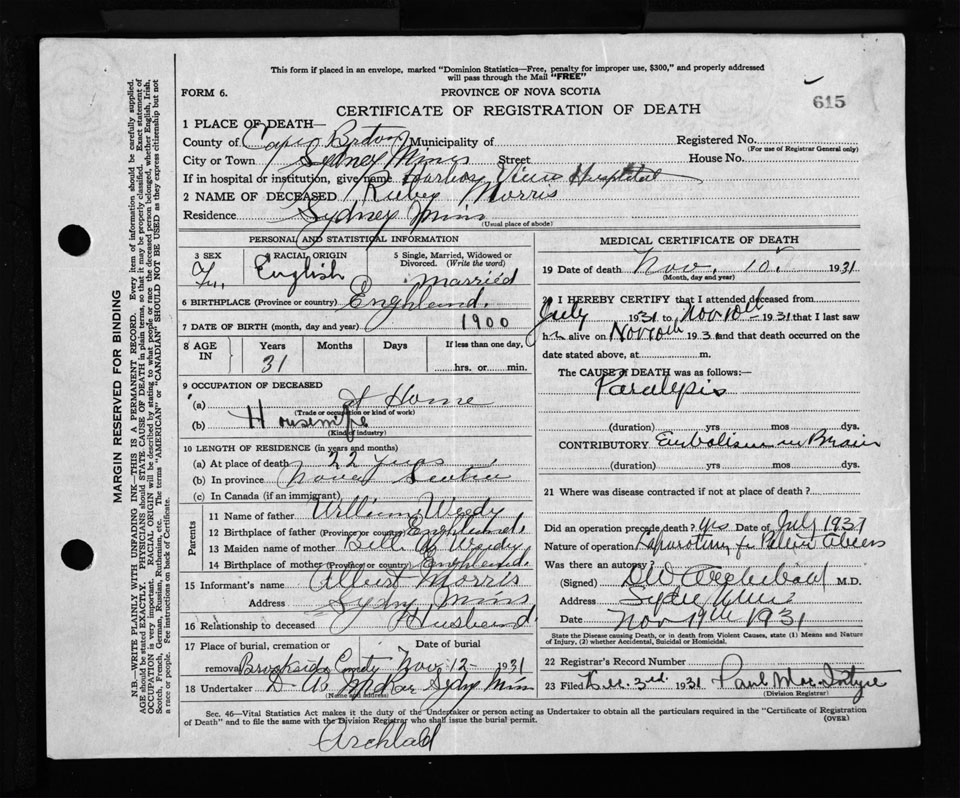 This form if placed in an envelope, marked "Dominion Statistics—Free, penalty for improper use, $300," and properly addressed
will pass through the Mail "FREE"
FORM 6.
PROVINCE OF NOVA SCOTIA
615
CERTIFICATE OF REGISTRATION OF DEATH
1 PLACE OF DEATH—
County of Cape Breton Municipality of Registered No.
(For use of Registrar General only)
City or Town Sydney Mines Street House No.
If in hospital or institution, give name Harbor View Hospital
2 NAME OF DECEASED Ruby Morris
Residence Sydney Mines
(Usual place of abode)
PERSONAL AND STATISTICAL INFORMATION
3 SEX 4 RACIAL ORIGIN 5 Single, Married, Widowed or Divorced. (Write the word)
English Married
6 BIRTHPLACE (Province or country) England.
7 DATE OF BIRTH (month, day and year) 1900
8 AGE IN Years Months Days If less than one day,
31 hrs. or min.
9 OCCUPATION OF DECEASED
(a) at Home
(Trade or occupation or kind of work)
(b) Housewife
(Kind of industry)
10 LENGTH OF RESIDENCE (in years and months)
(a) At place of death 22 years
(b) In province Nova Scotia
(c) In Canada (if an immigrant)
Parents
11 Name of father William Weedy
12 Birthplace of father (Province or country) England.
13 Maiden name of mother Weedy
14 Birthplace of mother (Province or country) England.
15 Informant's name Albert Morris
Address Sydny Mines
16 Relationship to deceased Husband
17 Place of burial, cremation or removal Date of burial
Brookside Nov 12 - 1931
18 Undertaker Sydny Mines
(Name and address)
MEDICAL CERTIFICATE OF DEATH
19 Date of death Nov. 10. 1931
(Month, day and year)
20 I HEREBY CERTIFY that I attended deceased from
July 1931 to Nov 10th 1931 that I last saw
alive on Nov 10th 1931 and that death occurred on the
date stated above, at m.
The CAUSE OF DEATH was as follows:—
Paralepis
(duration) yrs mos. dys.
CONTRIBUTORY Embolism in Brain
(duration) yrs mos. dys.
21 Where was disease contracted if not at place of death?
Did an operation precede death? yes Date of July 1931
Nature of operation Laparotomy for
Was there an autopsy?
(Signed) D W Archibald M.D.
Address
Date Nov 19th 1931
State the Disease causing Death, or in death from Violent Causes, state (1) Means and Nature
of Injury, (2) whether Accidental, Suicidal or Homicidal.
22 Registrar's Record Number
23 Filed Dec. 3rd. 1931 Paul Mac Intyre
(Division Registrar)
Sec. 46—Vital Statistics Act makes it the duty of the Undertaker or person acting as Undertaker to obtain all the particulars required in the "Certificate of Registration
of Death" and to file the same with the Division Registrar who shall issue the burial permit.
(OVER)
MARGIN RESERVED FOR BINDING
N.B.—WRITE PLAINLY WITH UNFADING INK—THIS IS A PERMANENT RECORD. Every item of information should be carefully supplied.
AGE should be stated EXACTLY. PHYSICIANS should STATE CAUSE OF DEATH in plain terms, so that it may be properly classified. Exact statement of
OCCUPATION is very important. RACIAL ORIGIN will be described by stating to what people or race the deceased person belonged, whether English, Irish,
Scotch, French, German, Russian, Ruthenian, etc. The terms "AMERICAN" or "CANADIAN" SHOULD NOT BE USED as they express citizenship but not
a race or people. See instructions on back of Certificate.